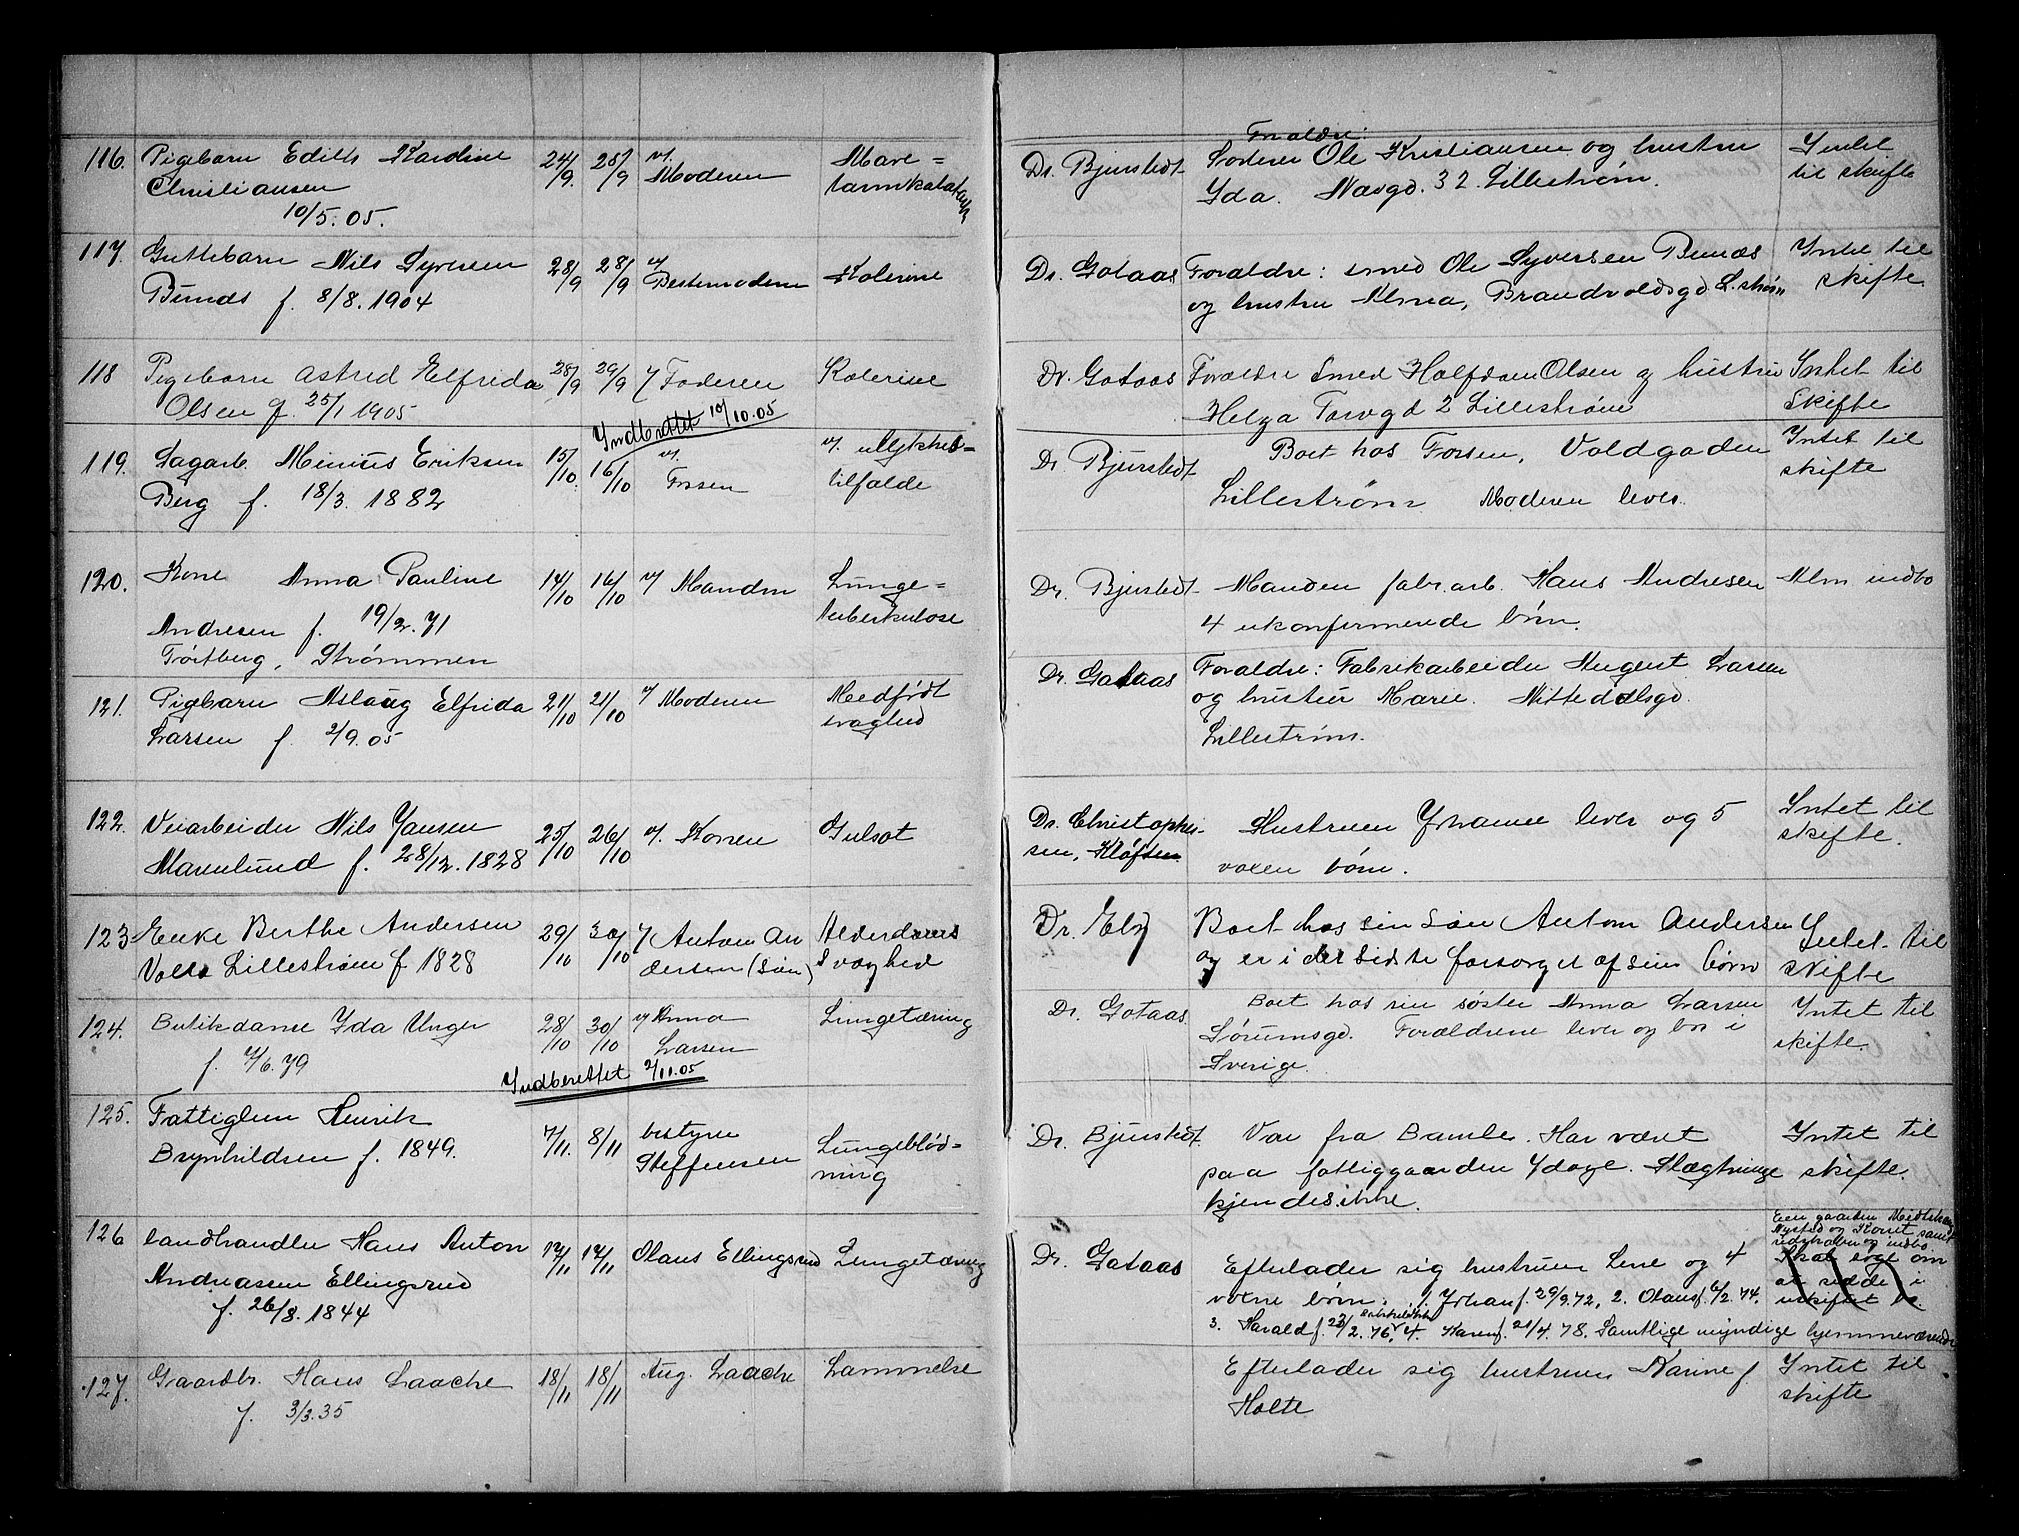 116. Pigebarn Edith Kardine
Christiansen
10/5. 05.
24/9. 25/9 v. Moderen
Mave=
tarmkatarrh
Dr. Bjurstedt
Forældre:
Ole Kristiansen og hustru
Yda. Nævgd. 32. Lillestrøm.
Intet
til skifte
117. Guttebarn Nils Syversen
Bunæs f. 8/8. 1904
28/9 28/9 v/ Bestemoderen
Kolerine
Dr. Gotaas
Forældre: smed Ole Syversen Bunæs
og hustru Alma, Brandvoldsgd. L.strøm
Intet til
skifte
118 Pigebarn Astrid Elfrida
Olsen f. 25/1 1905
28/9 29/9 v/ Faderen
Kolerine
Dr. Gotaas
Forældre Smed Halfdan Olsen og hustru
Helga Torvgd 2 Lillestrøm
Intet til
Skifte
Indberettet 10/10.05
119. Dagarb. Minius Eriksen
Berg f. 18/3. 1882
15/10. 16/10 v. Fossen
v. ulykkes=
tilfælde
Dr. Bjurstedt
Boet hos Fossen, Voldgaden
Lillestrøm Moderen lever.
Intet til
skifte
120. Kone Anna Pauline
Andresen f. 19/2. 71
Tørtberg, Strømmen
14/10 16/10 v/ Manden
Lunge=
tuberkulose
Dr. Bjurstedt
Manden fabr.arb. Hans Andresen
4 ukonfirmerede børn.
Alm indbo
121. Pigebarn Aslaug Elfrida
Larsen f. 2/9. 05
21/10 21/10 v/ Moderen
Medfødt
svaghed
Dr. Gotaas
Forældre: Fabrikarbeider August Larsen
og hustru Marie. Nittedalsgd.
Lillestrøm.
122. Veiarbeider Nils Jansen
Marenlund f. 28/12. 1828
25/10 26/10 v. Konen
Gulsot
Dr. Christophersen, Kløften
Hustruen Johanne lever og 5
voxen børn.
Intet til
skifte.
123 Enke Berthe Andersen
Volla Lillestrøm f. 1828
29/10 30/10 v/ Anton Andersen (Søn)
Alderdoms
Svaghed
Dr. Eby
Boet hos sin Søn Anton Andersen
og er i det sidste forsørget af sine børn
Intet til
skifte
124. Butikdame Ida Unger
f. 7/6. 79
28/10 30/10 v/ Anna
Larsen
Lungetæring
Dr. Gotaas
Boet hos sin søster Anna Larsen
Sørumsgd. Forældrene lever og bor i
Sverige.
Intet til
skifte.
Indberettet 2/11.05
125. Fattiglem Henrik
Brynhildsen f. 1849.
7/11. 8/11 bestyrer
Steffensen
Lungeblød-
ning
Dr. Bjurstedt
Var fra Bamle. Har været
paa fattiggaarden 4 dage. Slægtninge
kjendes ikke.
Intet til
skifte.
126 Landhandler Hans Anton
Andreassen Ellingsrud
f. 26/8. 1844
17/11 17/11 Olaus Ellingsrud
Lungetæring
Dr. Gotaas
Efterlader sig hustruen Lene og 4
voxne børn. 1. Johan f. 29/9.72, 2. Olaus f. 6/2. 74.
3. Harald f. 23/2. 76, 4. Karen f. 21/4. 78. Samtlige myndige hjemmeværende
Eier gaarden
Nysted og samt
og indbo.
Skal søge om
at sidde i
uskiftet bo.
127. Gaardbr. Hans Laache
f. 3/3. 35
18/11 18/11 Aug. Laache
Lammelse
Efterlader sig hustruen Karine f.
Holte
Intet til
skifte